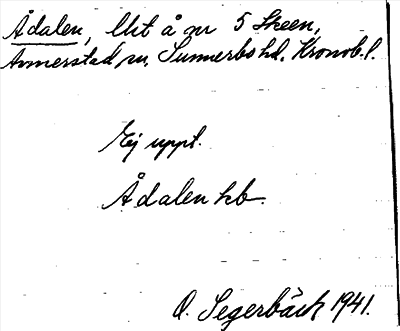 Ådalen, lht å nr 5 Skeen,
Annerstad sn, Sunnerbo hd. Kronob. l.
Ej uppt.
Ådalen hb.
O. Segerbäck 1941.